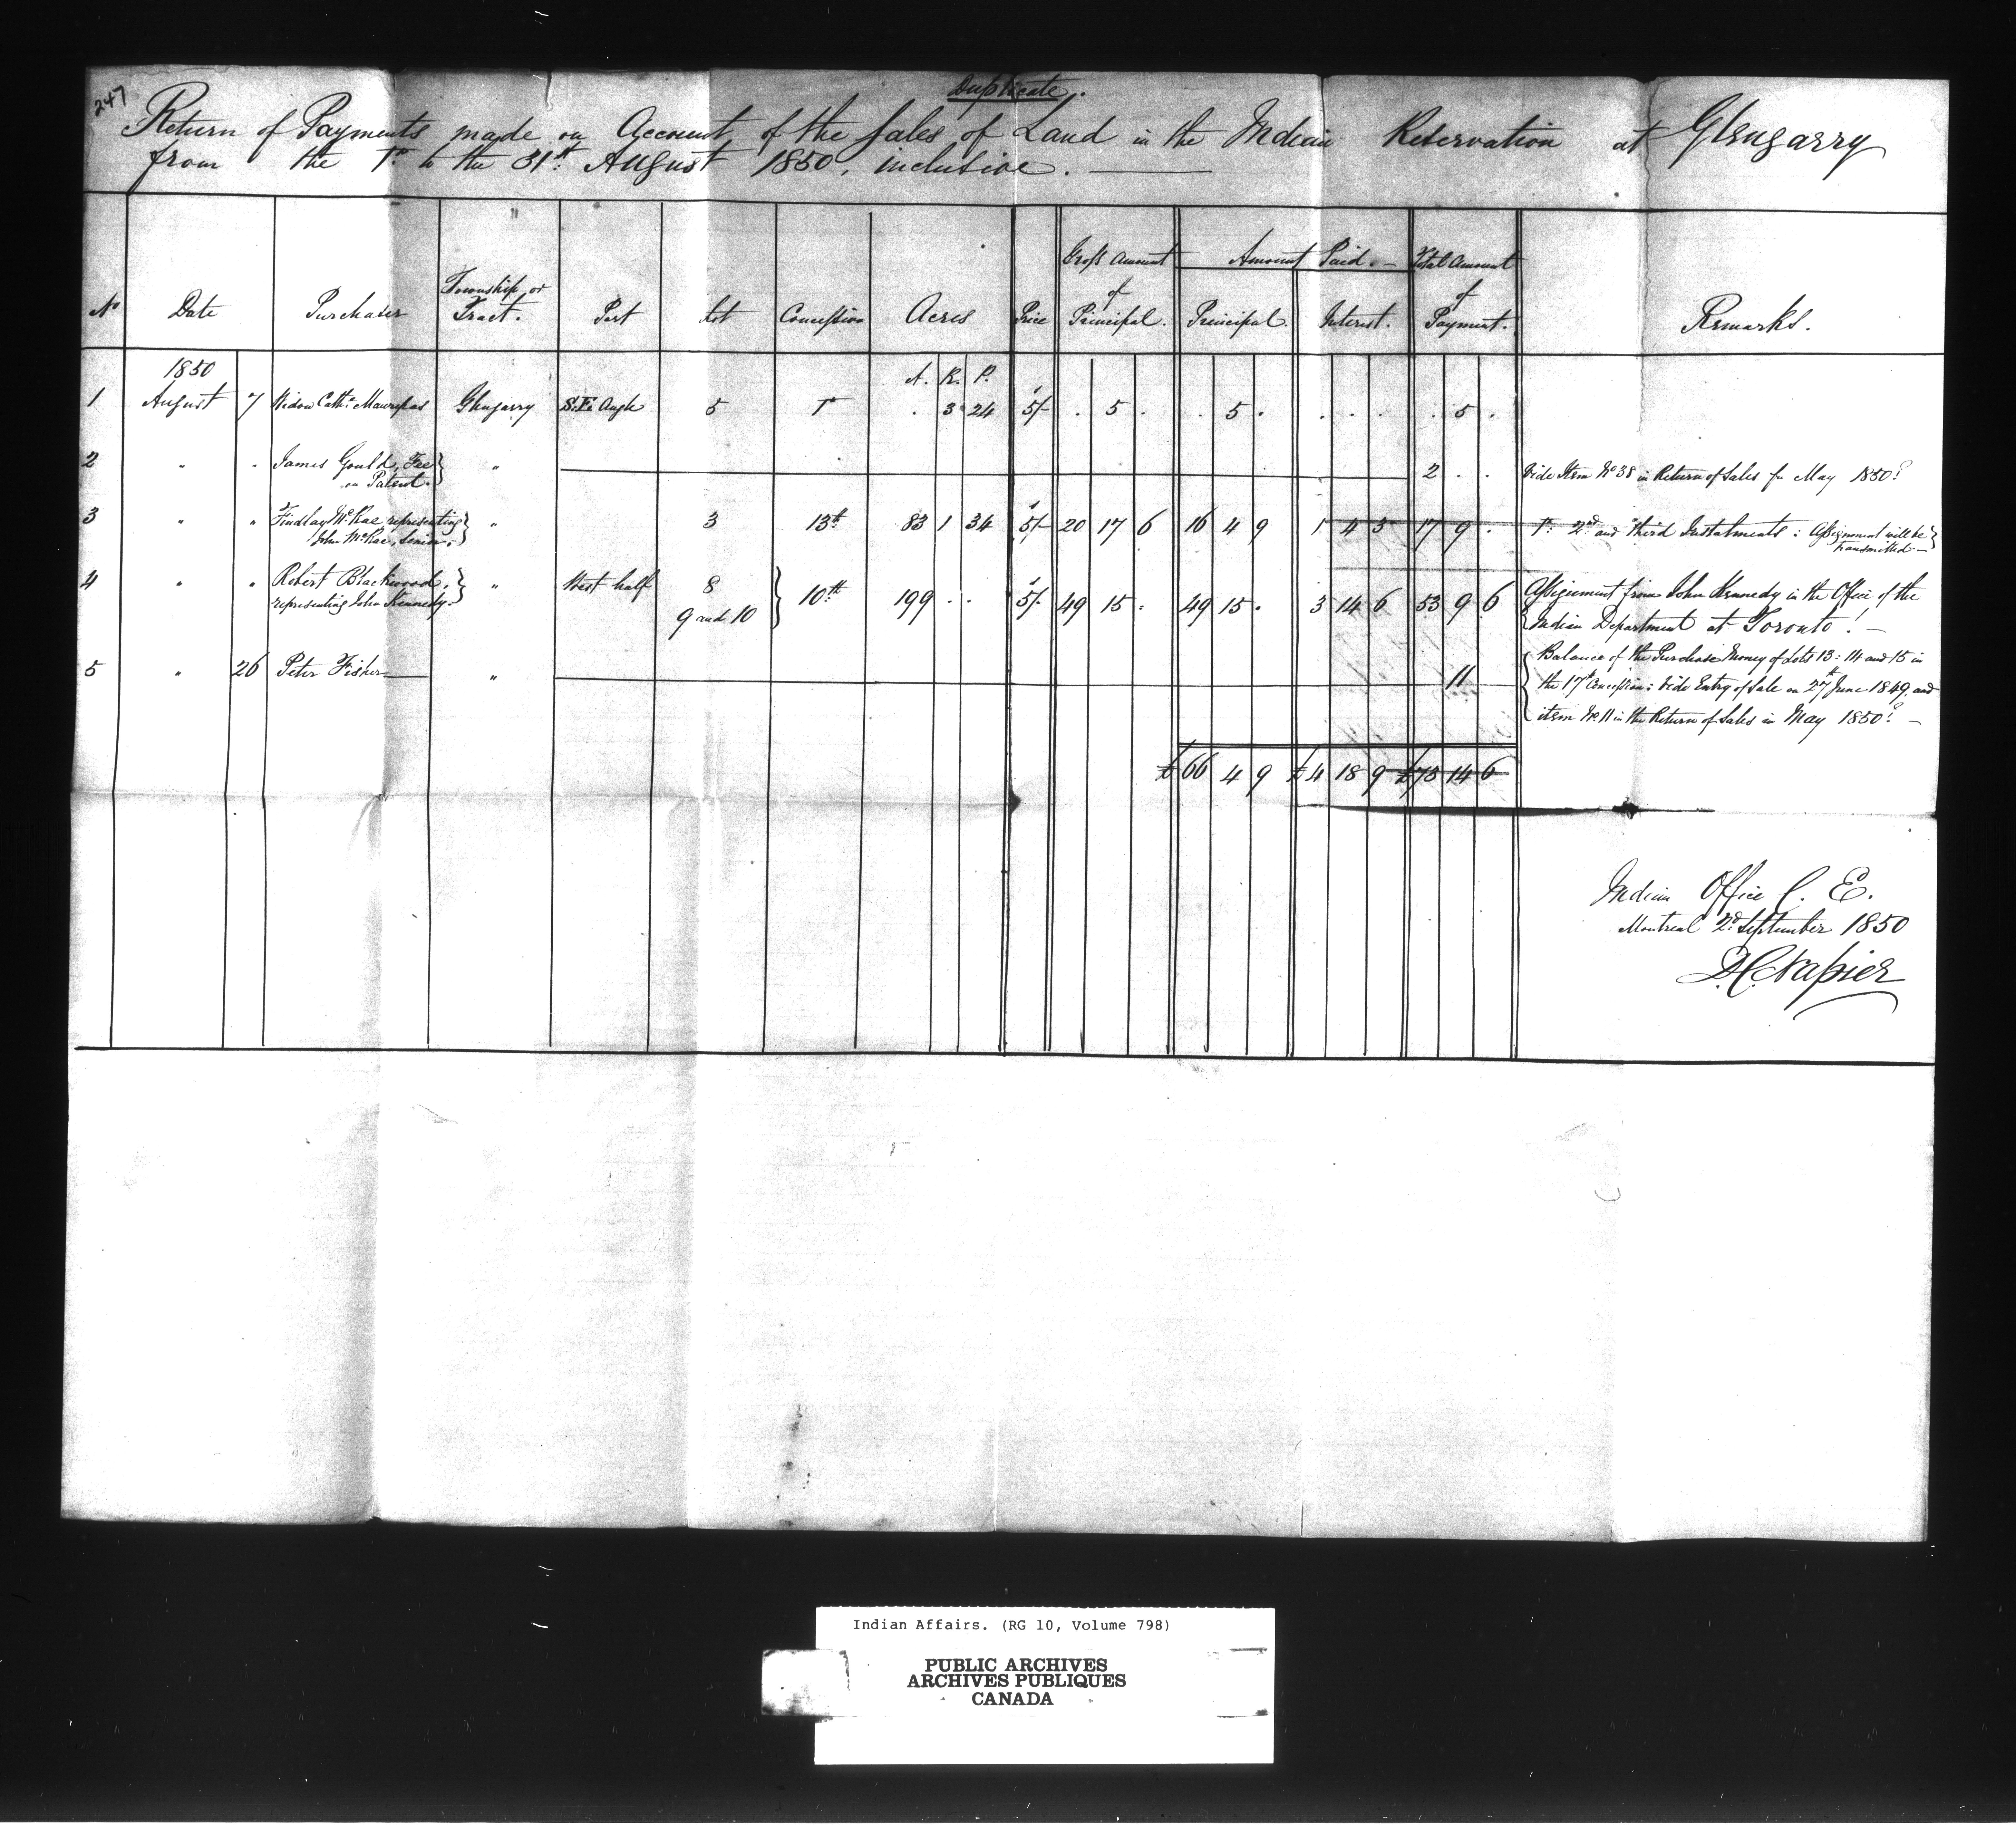 247
Duplicate.
Return of Payments made on Account of the Sales of Land in the Indian Reservation at Glengarry
from the 1st to the 31st August 1850, inclusive.
Gross Amount Amount Paid. Total Amount
No Date Purchaser Township or Tract. Part Lot Concession Acres Price of Principal. Principal. Interest. of Payment. Remarks.
1850 A. R. P.
1 August 7 Widow Cathe. Glengarry S.E. Angle 5 1st . 3 24 5/- . 5 . . 5 . . . . . 5 .
2 " " James Gould, Fee on Patent. " 2 . . Vide Item No 38 in Return of Sales for May 1850.
3 " " Findlay McRae representing John McRae, Senior. " 3 13th 83 1 34 5/- 20 17 6 16 4 9 1 4 3 17 9 . 1st 2nd and third Instalments : Assignment will be transmitted
4 " " Robert Blackwood, representing John Kennedy. " West half 8
9 and 10 10th 199 . . 5/- 49 15 . 49 15 . 3 14 6 53 9 6 Assignment from John Kennedy in the Office of the
Indian Department at Toronto.
5 " 26 Peter Fisher " 11 Balance of the Purchase Money of Lots 13 : 14 and 15 in
the 17th Concession : Vide Entry of Sale on 27th June 1849, and
item No 11 in the Return of Sales in May 1850.
£66 4 9 £4 18 9 £73 14 6
Indian Office C. E.
Montreal 2d September 1850
D.C. Napier
Indian Affairs. (RG 10, Volume 798)
PUBLIC ARCHIVES
ARCHIVES PUBLIQUES
CANADA